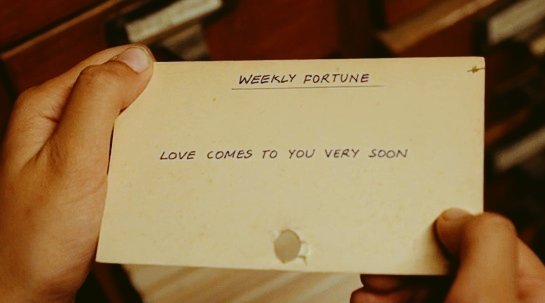 WEEKLY FORTUNE
LOVE COMES TO YOU VERY SOON